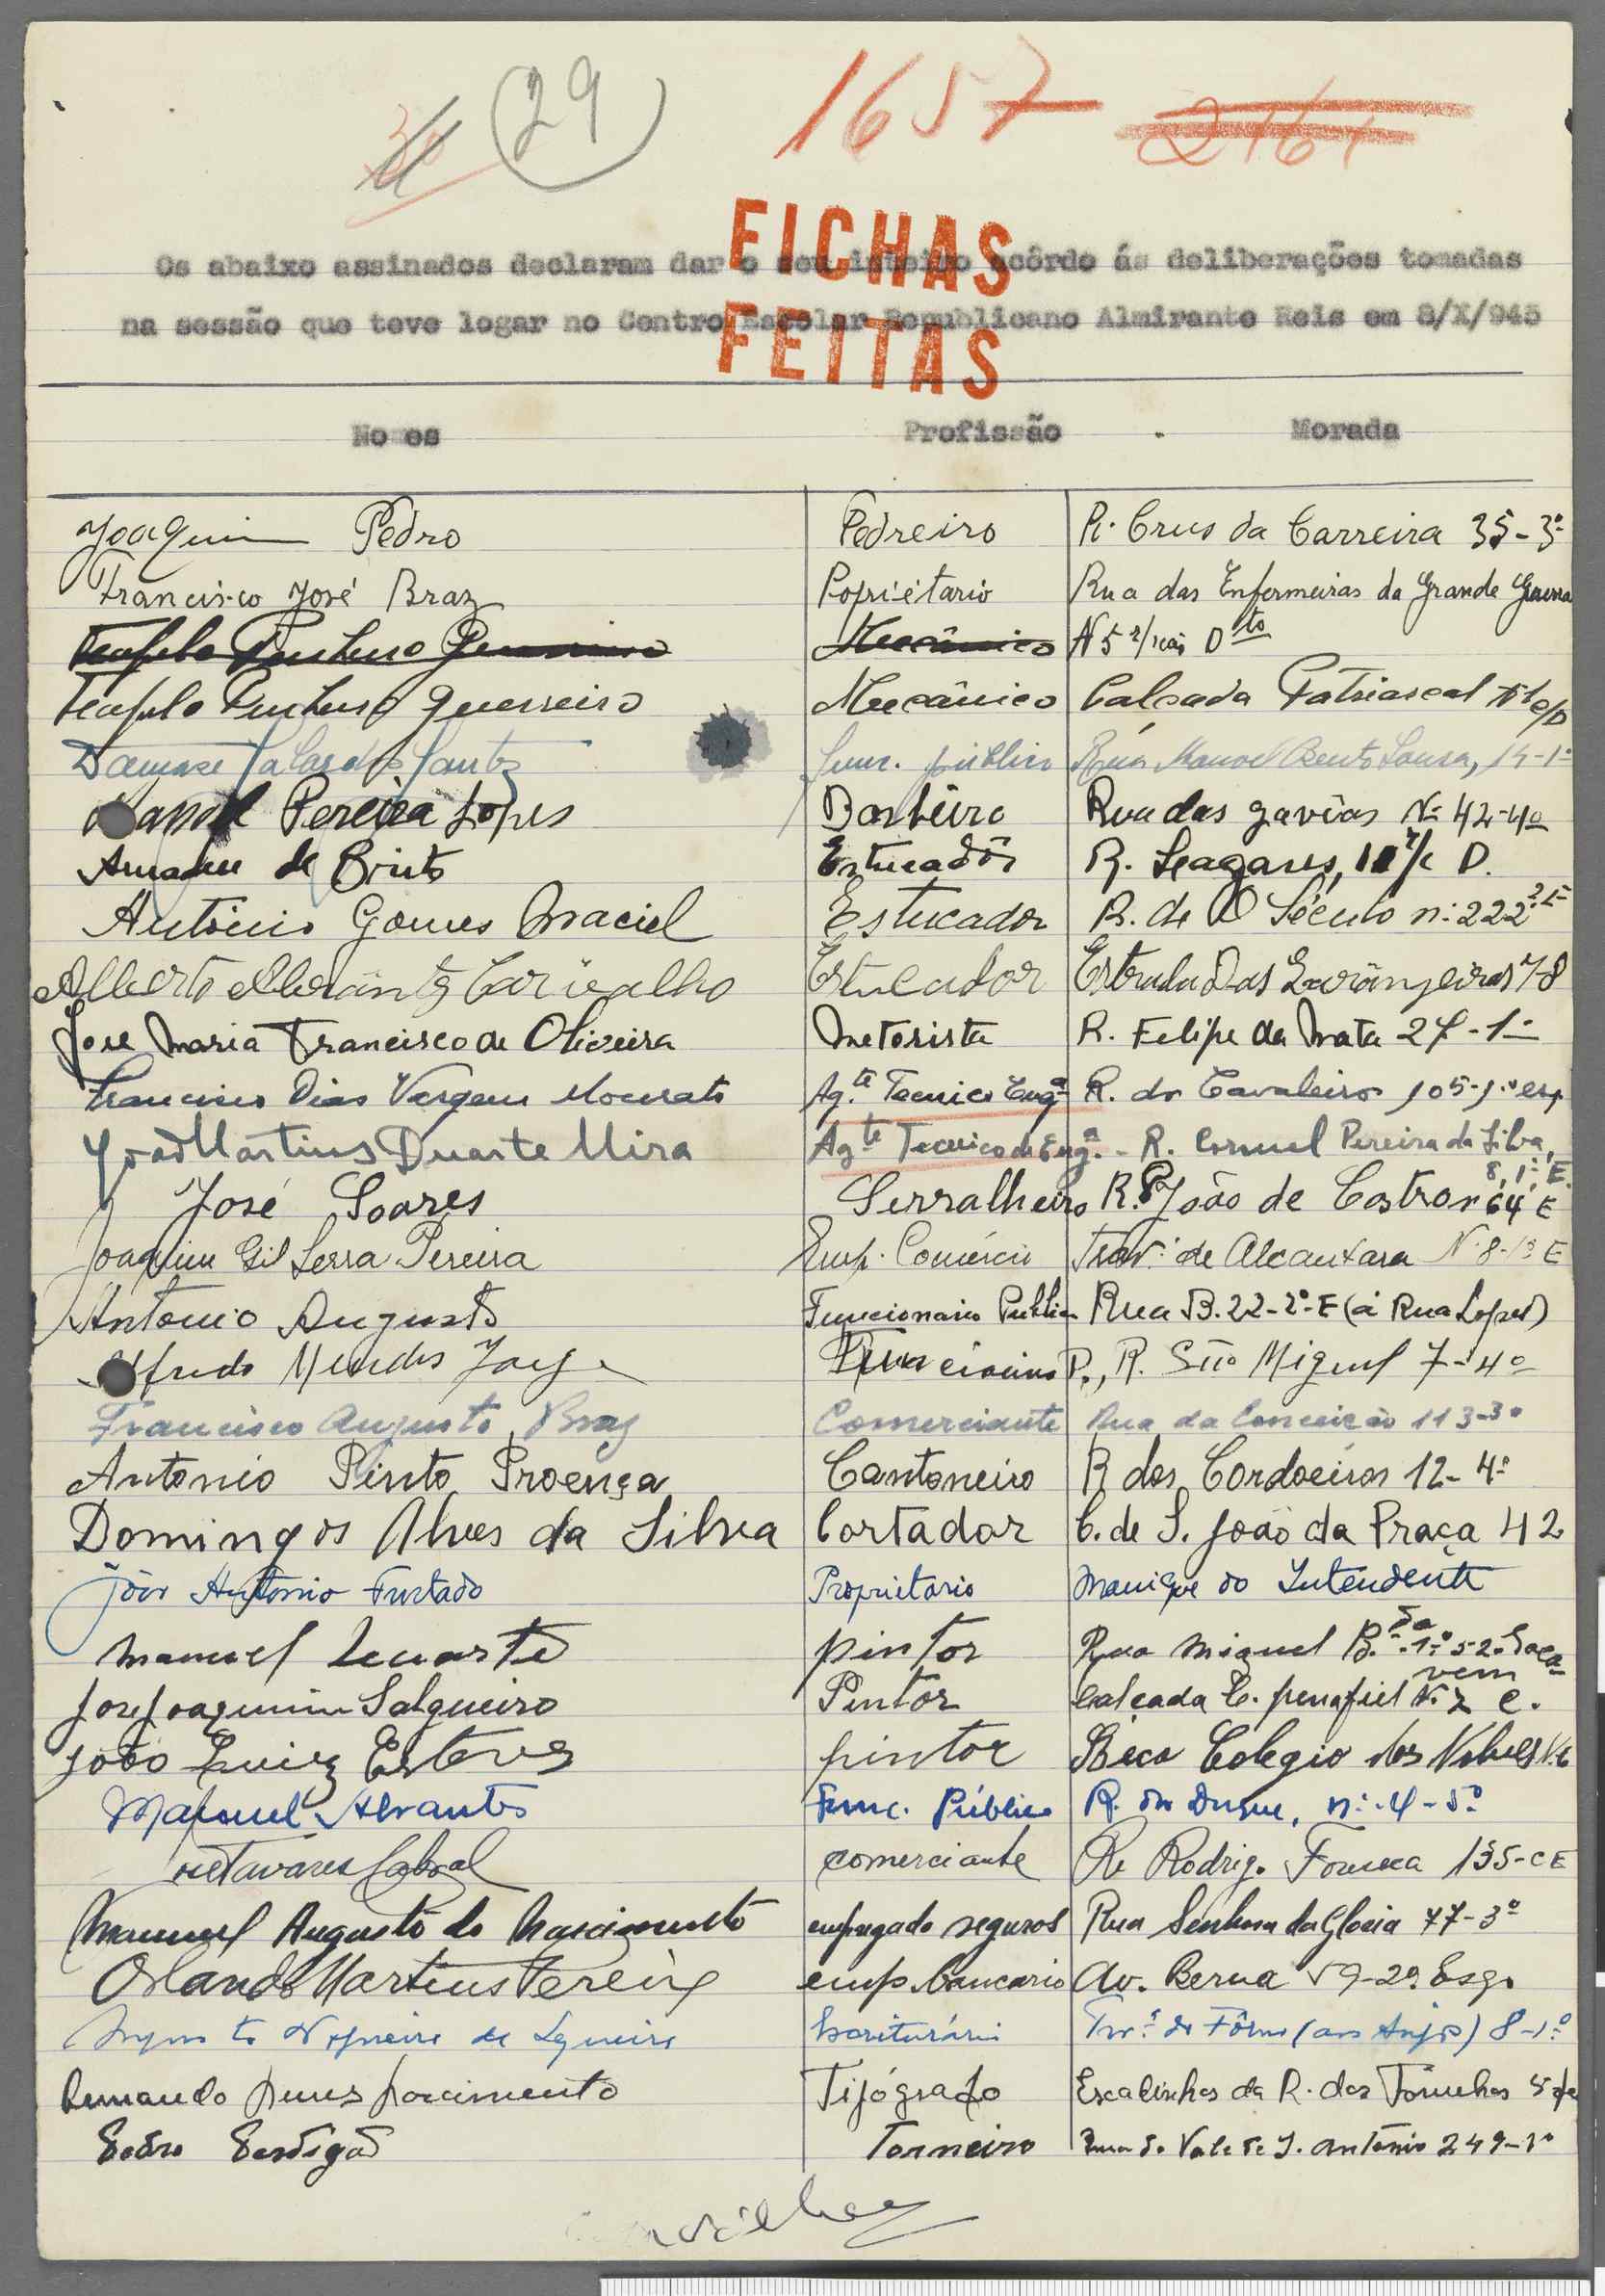 (29) 1657 2161
FICHAS
Os abaixo assinados declaram dar o seu inteiro acôrdo ás deliberações tomadas
FEITAS
na sessão que teve logar no Centro Escolar Republicano Almirante Reis em 8/X/945
Nomes Profissão Morada
Joaquim Pedro Pedreiro R. Crus da Carreira 35-3º
Francisco José Braz Popriétario Rua das Enfermeiras da Grande Guerra
Mecânico N 5 r/ Dto
Guerreiro Mecânico Calsada Patriarcal
Func. público Rua Manoel Bento Sousa, 14-1º
Manoel Pereira Lopes Barbeiro Rua das gavias Nº 42-4º
Amadeu de Brito Estucadôr R. Leagares, 11 r/c D.
António Gomes Maciel Estucador R. de O Século nº 222
Alberto Abrantes Carvalho Estucador Estrada Das Larângeiras 78
José Maria Francisco de Oliveira Motorista R. Felipe da Mata 27-1º
Francisco Dias Vargem Mourato Ag.te Tecnico Eng.ª R. do Cavaleiro 105-1º esq
João Martins Duarte Mira Ag.te Tecnico de Eng.ª - R. Coronel Pereira da Silva,
8, 1º E.
José Soares Serralheiro R. João de Castro nº 64 E
Joaquim Gil Serra Pereira Emp. Comércio Trav. de Alcantara N. 8-1º E
Antonio Augusto Funcionario Publico Rua B. 22-2º-E (á Rua Lopes)
Alfredo Mendes Jorge Funcionario P., R. São Miguel 7-4º
Francisco Augusto Braz Comerciante Rua da Conceição 113-3º
Antonio Pinto Proença Cantoneiro R dos Cordoeiros 12-4º
Domingos Alves da Silva Cortador C. de S. João da Praça 42
João António Furtado Proprietario Manique do Intendente
Manuel Duarte pintor Rua Miguel B.da-1º 52-Saca-
vem
José Joaquim Salgueiro Pintor Calçada C. penafiel N. 2 C.
João Luiz Esteves pintor Béco Colegio dos Nobres N. 6
Manuel Abrantes Func. Público R. do Duque, nº-4-5º
José Tavares Cabral comerciante R. Rodrig. Fonseca 135-C E
Manuel Augusto do Nascimento empregado seguros Rua Senhora da Gloria 77-3º
Orlando Martins Pereira emp. bancario Av. Berna 59-2º Esq.
Augusto Nogueira de Sequeira Escriturário Trv.ª do Fôrno (aos Anjos) 8-1º
Nascimento Tipógrafo Escadinhas da R. das Farinhas 5
Pedro Perdigão Torneiro Rua do Vale de S. António 249-1º